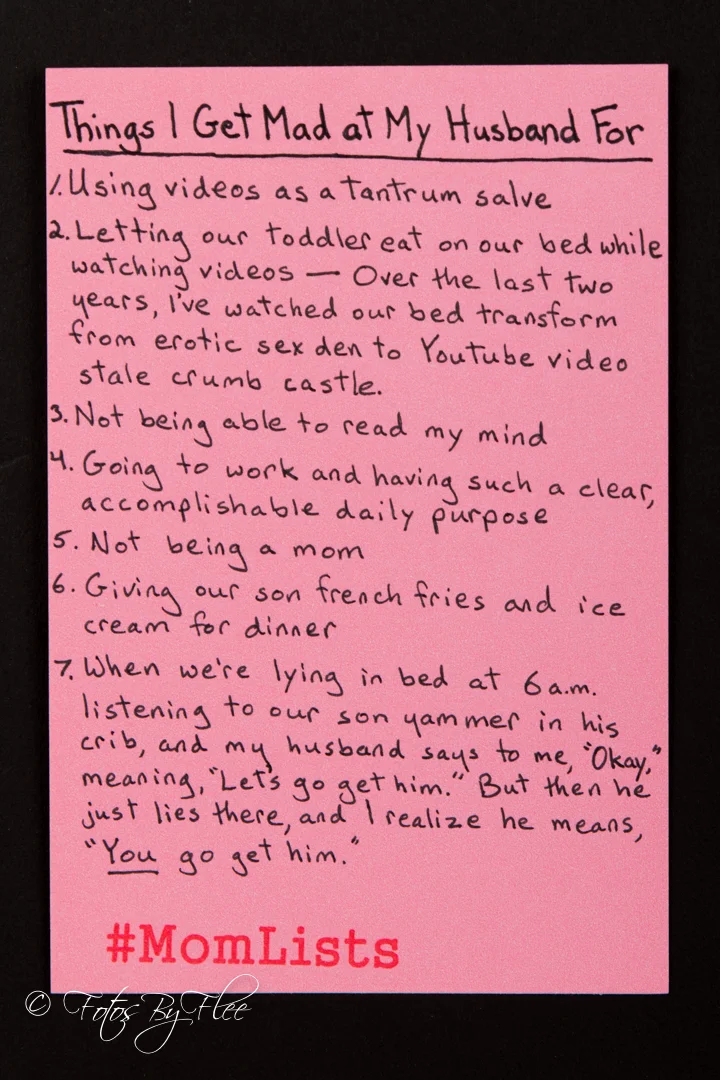 Things I Get Mad at My Husband For
1. Using videos as a tantrum salve
2. Letting our toddler eat on our bed while
watching videos — Over the last two
years, I've watched our bed transform
from erotic sex den to Youtube video
stale crumb castle.
3. Not being able to read my mind
4. Going to work and having such a clear,
accomplishable daily purpose
5. Not being a mom
6. Giving our son french fries and ice
cream for dinner
7. When we're lying in bed at 6 a.m.
listening to our son yammer in his
crib, and my husband says to me, "Okay,"
meaning, "Let's go get him." But then he
just lies there, and I realize he means,
"You go get him."
#MomLists
© Fotos By Flee